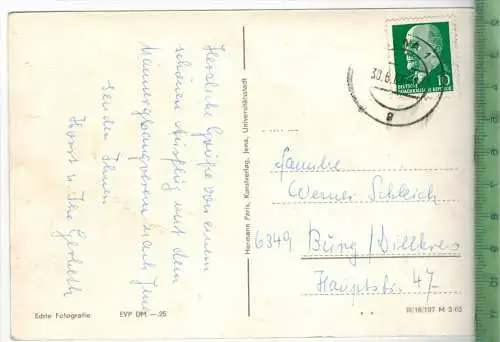 Herzliche Grüße von einem
schönen Ausflug mit dem
Männergesangverein nach Jena
senden Ihnen
Horst u. Ilse Gerlach
Echte Fotografie
EVP DM —.25
Hermann Paris, Kunstverlag, Jena, Universitätsstadt
NA 1
30.6.
a
10
DEUTSCHE
DEMOKRATISCHE REPUBLIK
Familie
Werner Schleich
6349 Burg/Dillkreis
Hauptstr. 47
III/18/197 M 3/65